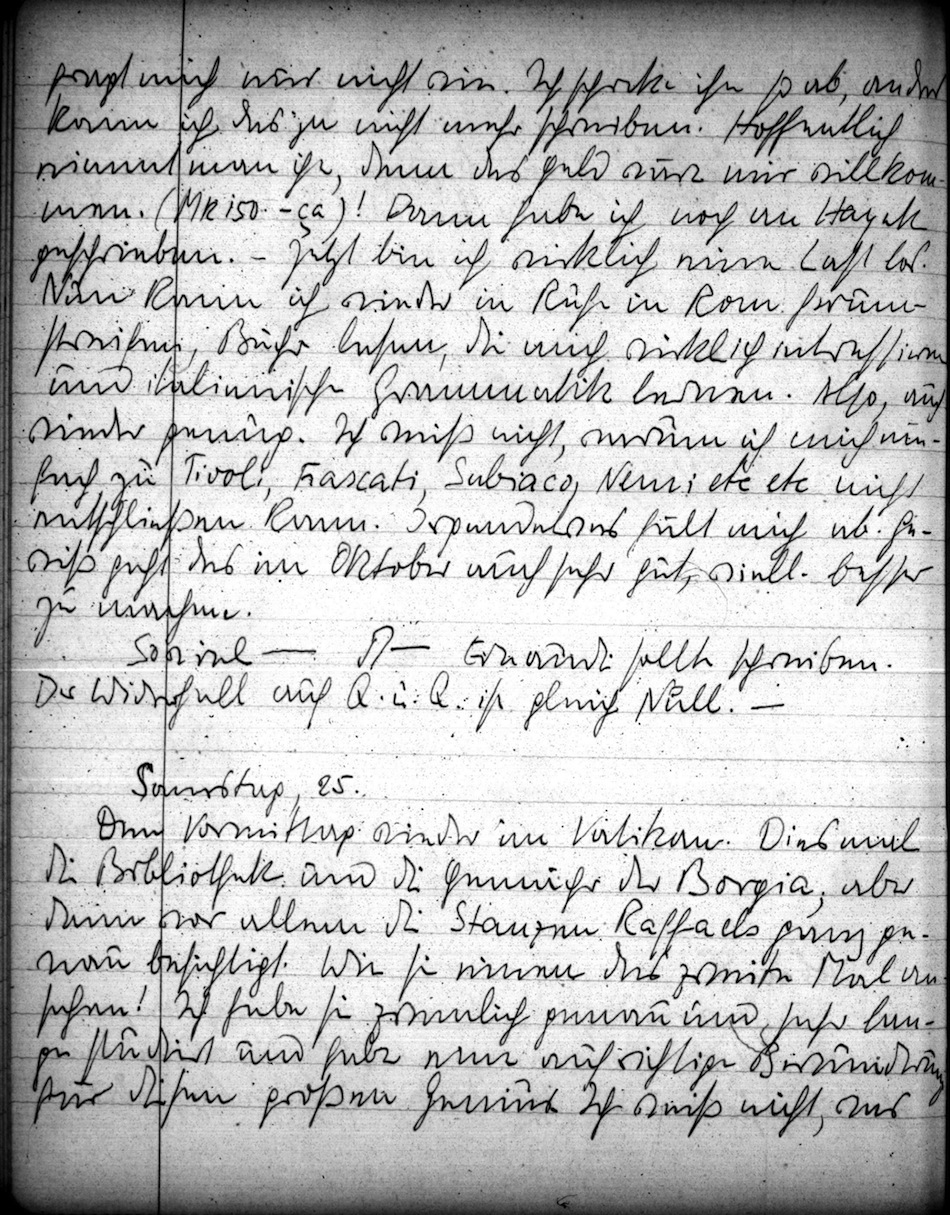 fragt mich nur nicht wie. Ich schicke ihn so ab, anders
kann ich das zu nicht mehr schreiben. Hoffentlich
nimmt man ihn, denn das Geld wäre mir willkom-
men. (Mk 150.- ça)! Dann habe ich noch an Hayek
geschrieben. – Jetzt bin ich wirklich eine Last los.
Nun kann ich wieder in Ruhe in Rom herum-
streifen, Bücher lesen, die mich wirklich interessieren
und italienische Grammatik lernen. Also, auch
wieder genug. Ich weiß nicht, warum ich mich ein-
fach zu Tivoli, Frascati, Subiaco, Nemi etc etc nicht
entschließen kann. Irgendetwas hält mich ab. Ge-
wiß geht das im Oktober auch sehr gut, viell. besser
zu machen.
sollte schreiben.
Der Widerhall auf Q. u. Q. ist gleich Null. —
Samstag, 25.
Den Vormittag wieder im Vatikan. Diesmal
die Bibliothek und die Gemächer der Borgia, aber
dann vor allem die Stanzen Raffaels ganz ge-
nau besichtigt. Wie sie einen das zweite Mal an
sehen! Ich habe sie ziemlich genau und sehr lan-
ge studiert und habe eine aufrichtige Bewunderung
für diesen großen Genius. Ich weiß nicht, was